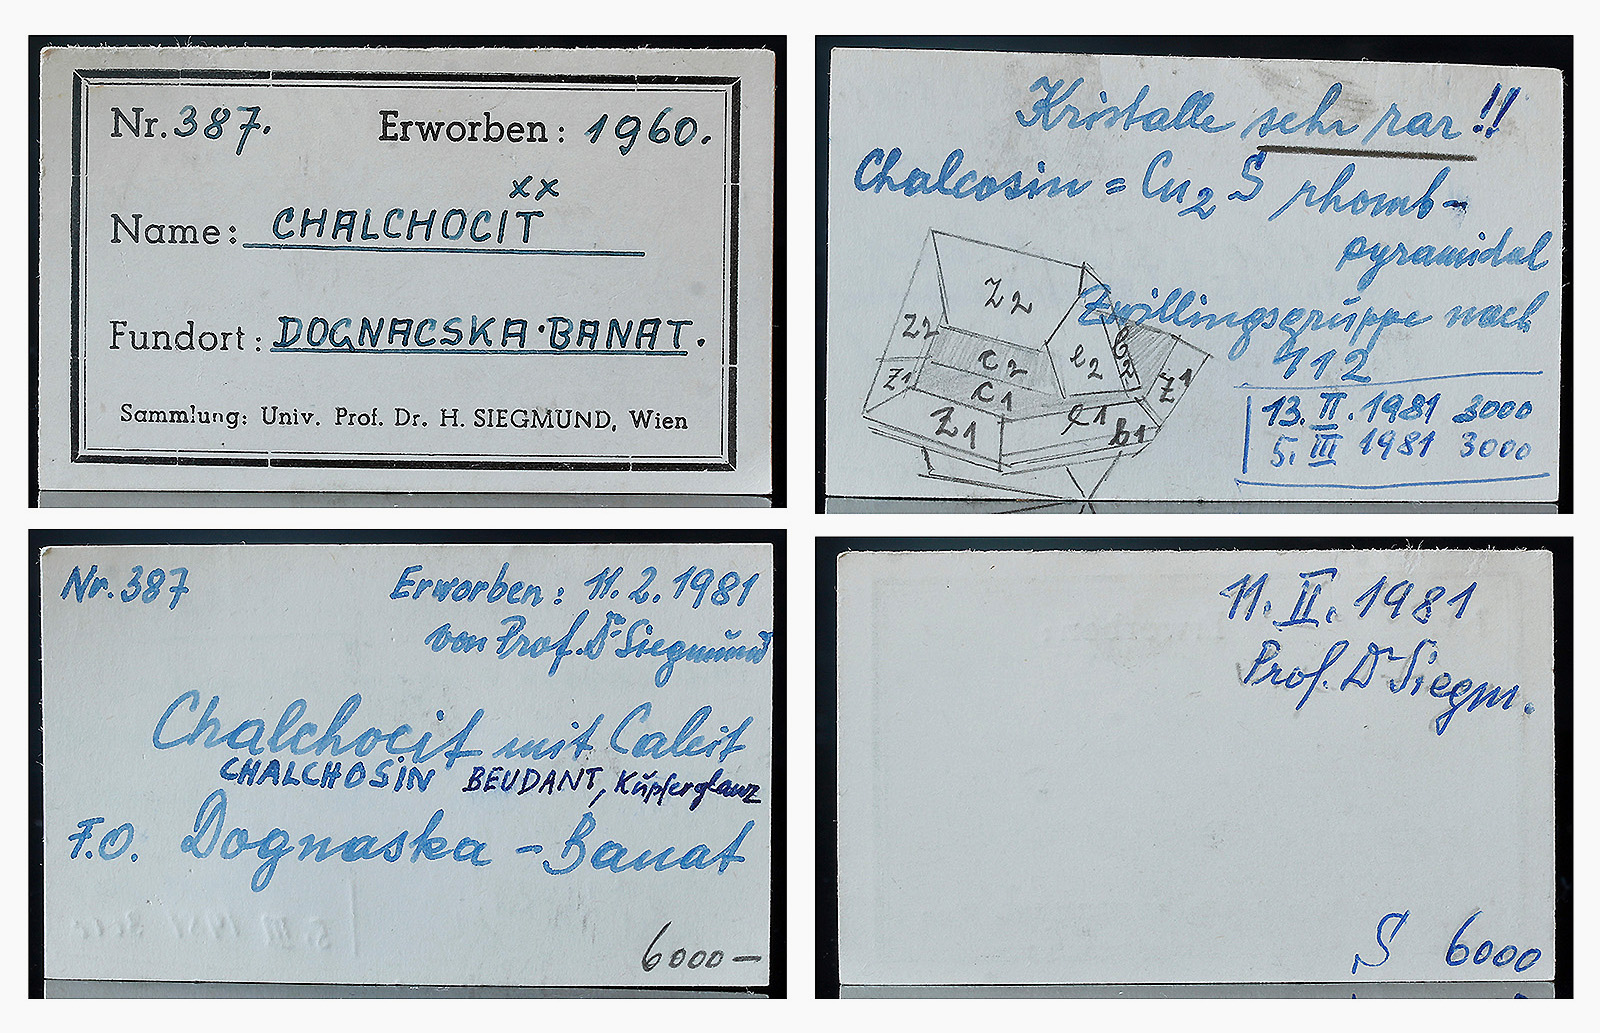 Nr. 387. Erworben: 1960.
xx
Name: CHALCHOCIT
Fundort: DOGNACSKA·BANAT.
Sammlung: Univ. Prof. Dr. H. SIEGMUND, Wien
Kristalle sehr rar!!
Chalcosin = Cu2 S rhomb-
pyramidal
Zwillingsgruppe nach
112
13. II. 1981 3000
5. III 1981 3000
z2
z2 c2 e2 b2
z1 c1 z1
z1 e1 b1
Nr. 387 Erworben: 11. 2. 1981
von Prof. Dr Siegmund
Chalchocit mit Calcit
CHALCHOSIN BEUDANT, Kupferglanz
F.O. Dognaska - Banat
6000—
11. II. 1981
Prof. Dr Siegm.
S 6000